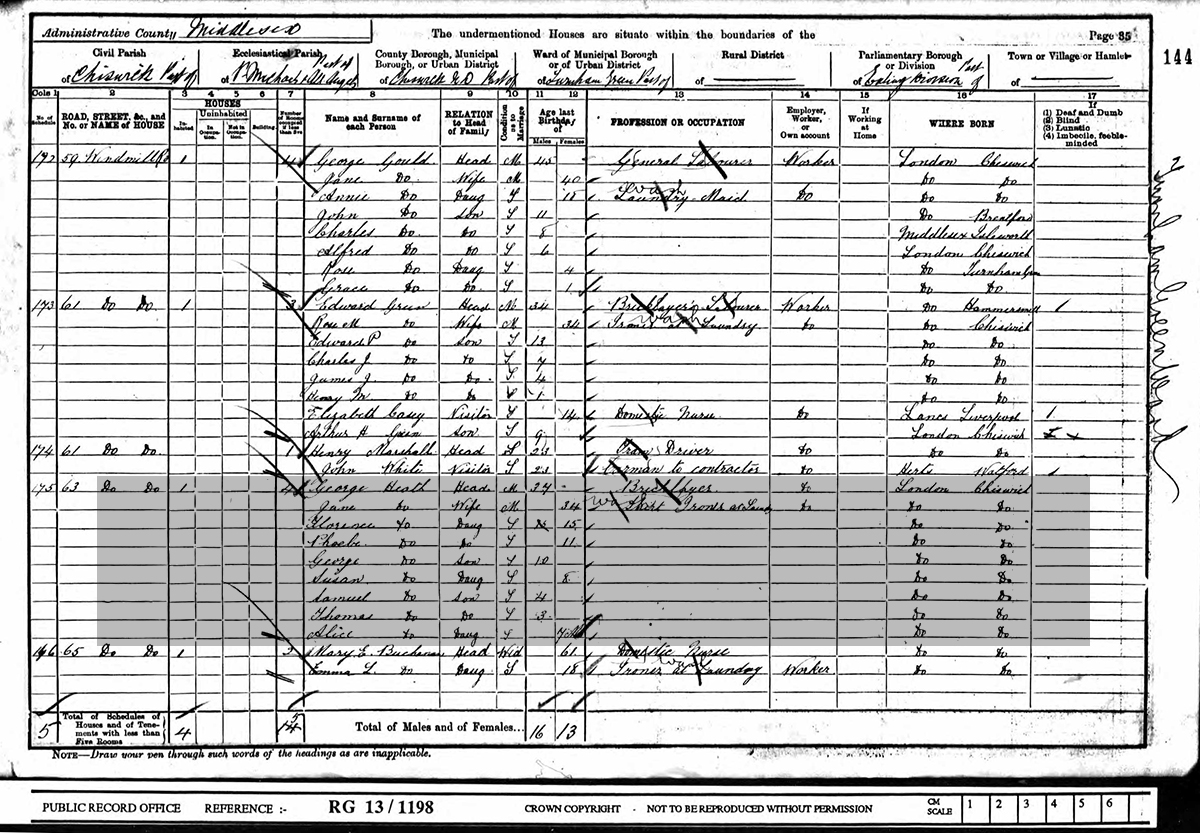 Administrative County Middlesex
The undermentioned Houses are situate within the boundaries of the
Page 35
144
Civil Parish
of Chiswick Part of
Ecclesiastical Parish Part of
of St Michael & All Angels
County Borough, Municipal Borough, or Urban District
of Chiswick U D Part of
Ward of Municipal Borough or of Urban District
of Turnham Green Part of
Rural District
of
Parliamentary Borough or Division Part
of Ealing Division of
Town or Village or Hamlet
of
Cols 1 2 3 4 5 6 7 8 9 10 11 12 13 14 15 16 17
No. of Schedule
ROAD, STREET, &c., and No. or NAME of HOUSE
HOUSES
Inhabited
Uninhabited
In Occupation.
Not in Occupation.
Building
Number of Rooms occupied if less than five
Name and Surname of each Person
RELATION to Head of Family
Condition as to Marriage
Age last Birthday of
Males Females
PROFESSION OR OCCUPATION
Employer, Worker, or Own account
If Working at Home
WHERE BORN
If
(1) Deaf and Dumb
(2) Blind
(3) Lunatic
(4) Imbecile, feeble-minded
172 59 Windmill Rd 1 4 George Gould Head M 45 General Labourer Worker London Chiswick
Jane Do Wife M 40 Do Do
Annie Do Daug S 18 Laundry Maid Do Do Do
John Do Son S 11 Do Brentford
Charles Do Do S 8 Middlesex Isleworth
Alfred Do Do S 6 London Chiswick
Rose Do Daug S 4 Do Turnham Grn
Grace Do Do S 1 Do Do
173 61 Do Do 1 3 Edward Green Head M 34 Bricklayers Labourer Worker Do Hammersmith
Rose M Do Wife M 34 Ironer at Laundry Do Do Chiswick
Edward P Do Son S 13 Do Do
Charles J. Do Do S 7 Do Do
James J. Do Do S 4 Do Do
Henry M Do Do S 1 Do Do
Elizabeth Casey Visitor S 14 Domestic Nurse Do Lancs Liverpool
Arthur H Green Son S 9 London Chiswick
174 61 Do Do 1 Henry Marshall Head S 23 Tram Driver Do Do Do
John White Visitor S 23 Carman to contractor Do Herts Watford
175 63 Do Do 1 4 George Heath Head M 37 Bricklayer Do London Chiswick
Jane Do Wife M 34 Shirt Ironer at Laundry Do Do Do
Florence Do Daug S 15 Do Do
Phoebe Do Do S 11 Do Do
George Do Son S 10 Do Do
Susan Do Daug S 8 Do Do
Samuel Do Son S 4 Do Do
Thomas Do Do S 3 Do Do
Alice Do Daug S 7 Mo Do Do
176 65 Do Do 1 3 Mary E. Buchanan Head Wid 61 Domestic Nurse Do Do
Emma L. Do Daug S 18 Ironer at Laundry Worker Do Do
5 Total of Schedules of Houses and of Tenements with less than Five Rooms 4 Total of Males and of Females... 16 13
NOTE—Draw your pen through such words of the headings as are inapplicable.
Turnham Green Ward
PUBLIC RECORD OFFICE REFERENCE :- RG 13/1198 CROWN COPYRIGHT - NOT TO BE REPRODUCED WITHOUT PERMISSION CM SCALE 1 2 3 4 5 6